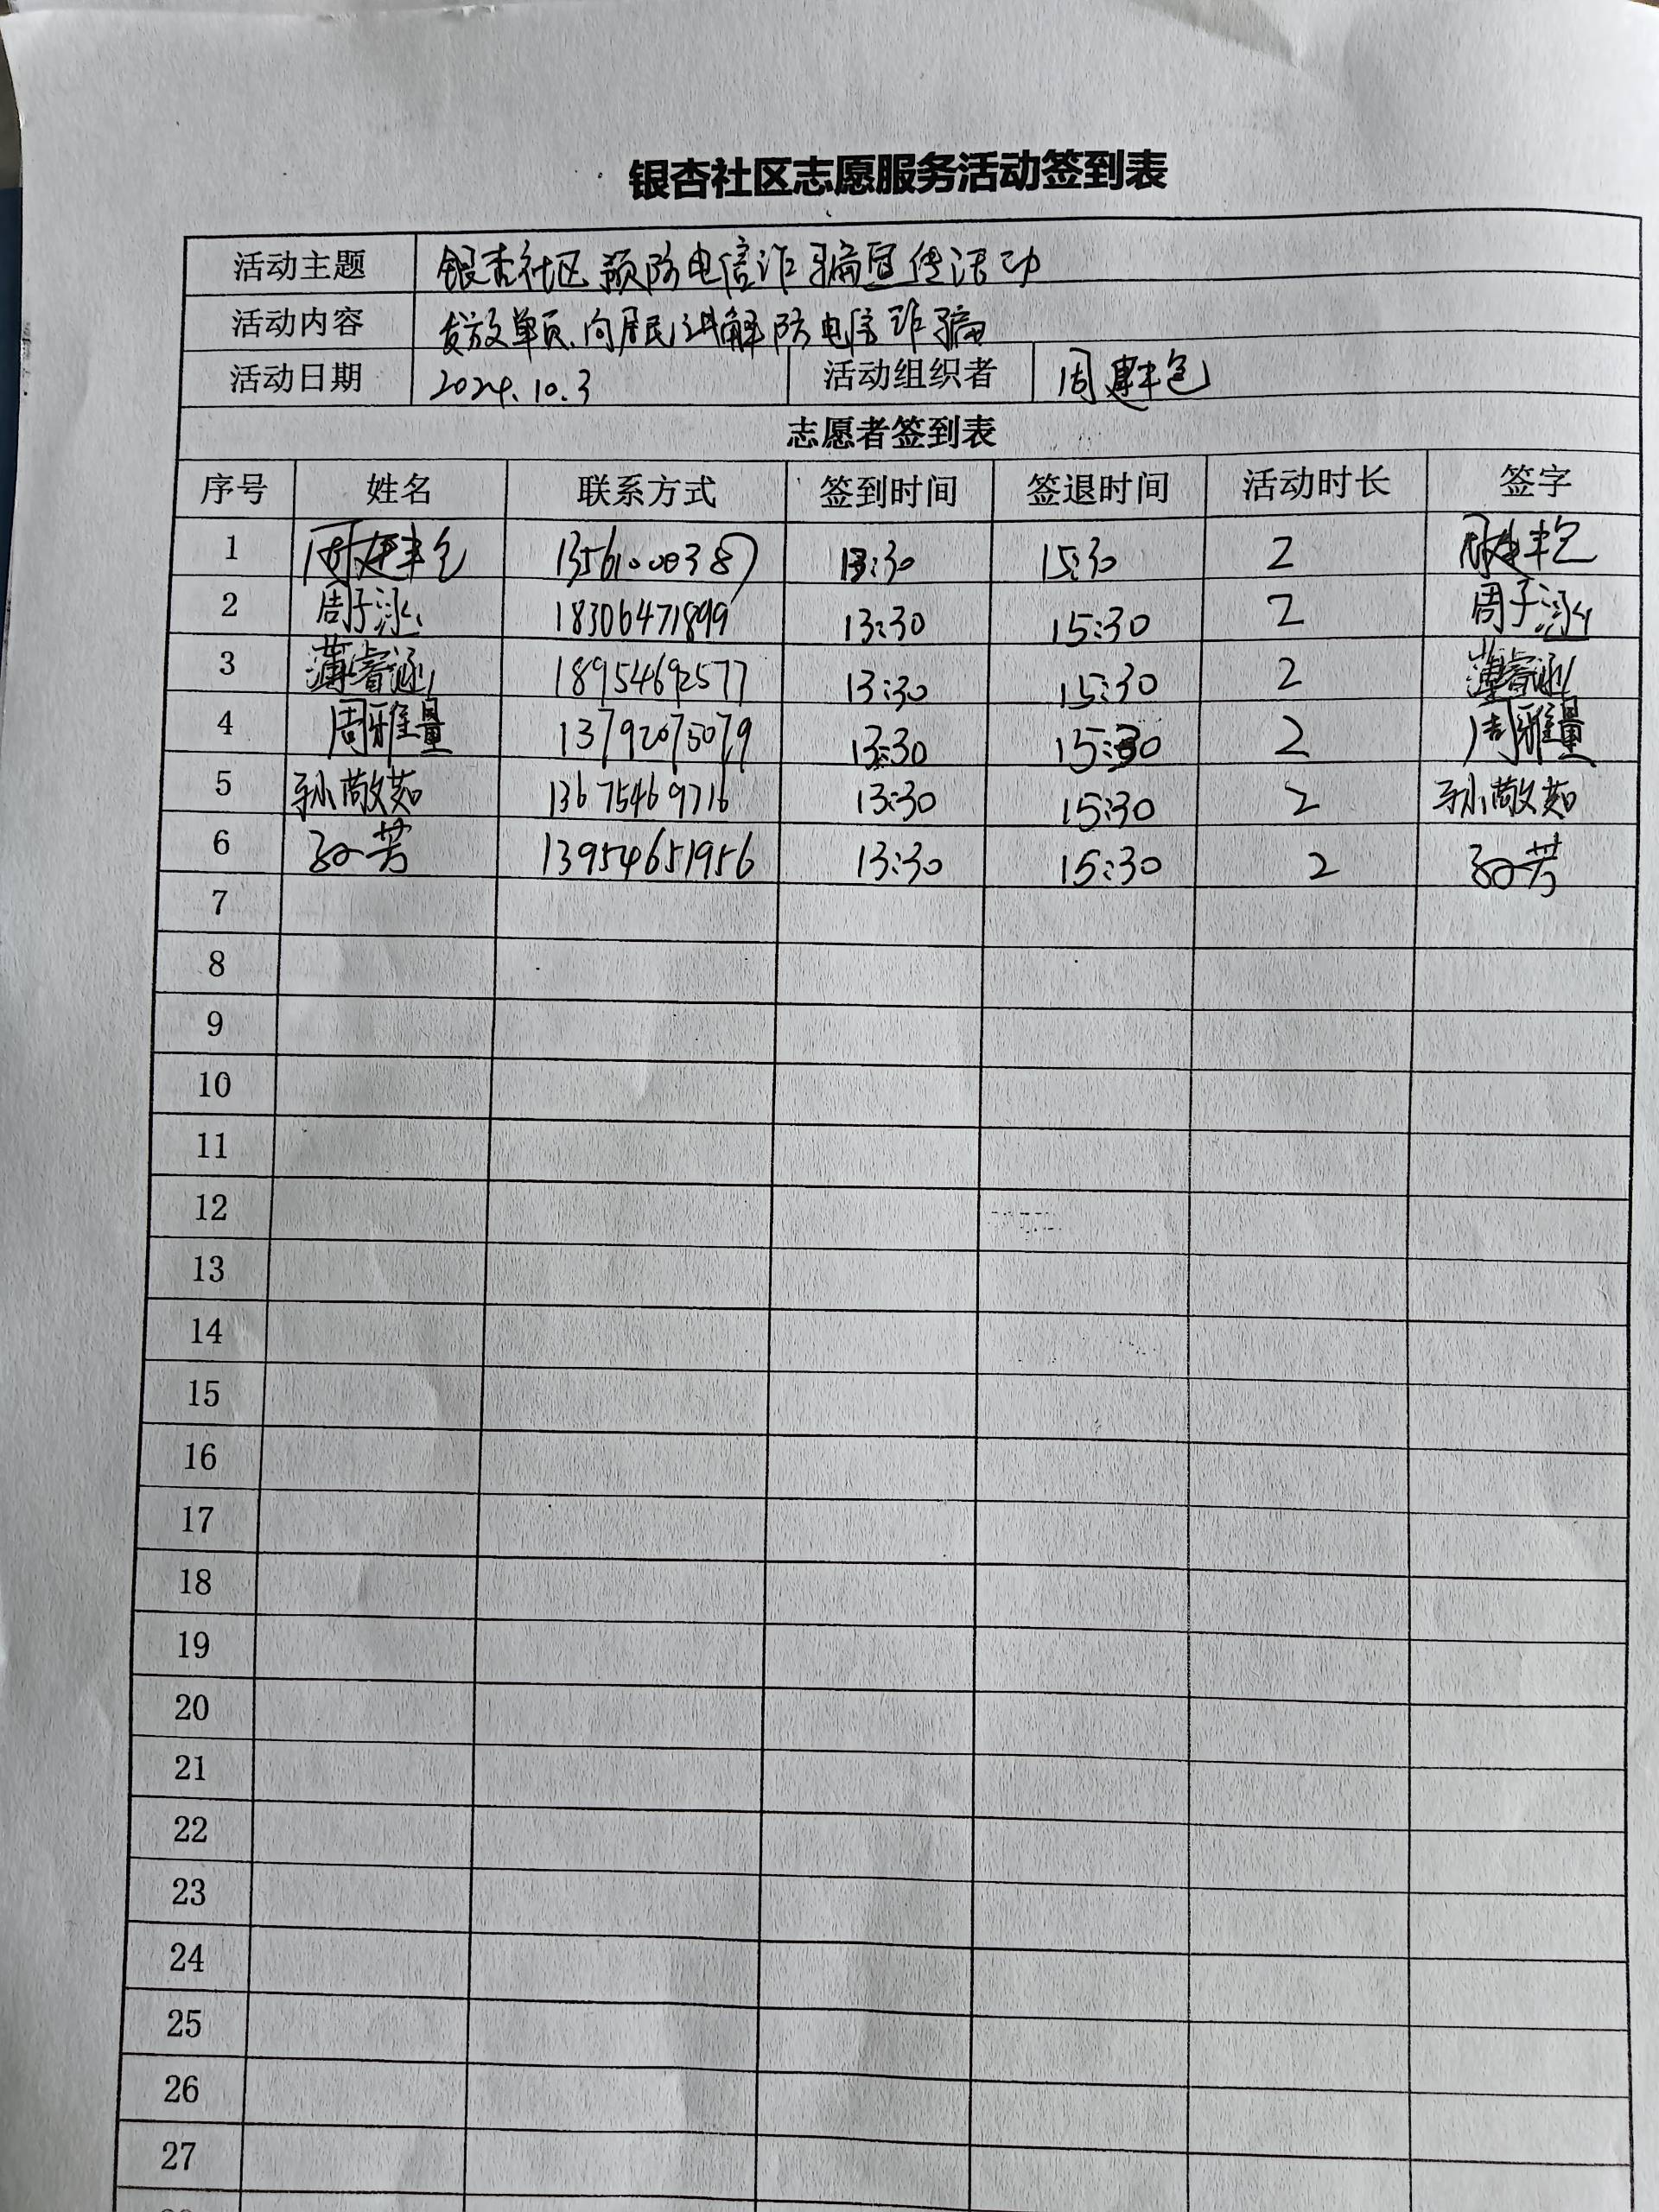 银杏社区志愿服务活动签到表
活动主题 银杏社区预防电信诈骗宣传活动
活动内容 发放单页、向居民讲解防电信诈骗
活动日期 2024.10.3 活动组织者 周建艳
志愿者签到表
序号 姓名 联系方式 签到时间 签退时间 活动时长 签字
1 周建艳 13561000387 13:30 15:30 2 周建艳
2 周子泓 18306471899 13:30 15:30 2 周子泓
3 薄睿涵 18954692577 13:30 15:30 2 薄睿涵
4 周雅量 13792075079 13:30 15:30 2 周雅量
5 孙敬茹 13675469716 13:30 15:30 2 孙敬茹
6 孙芳 13954651956 13:30 15:30 2 孙芳
7
8
9
10
11
12
13
14
15
16
17
18
19
20
21
22
23
24
25
26
27